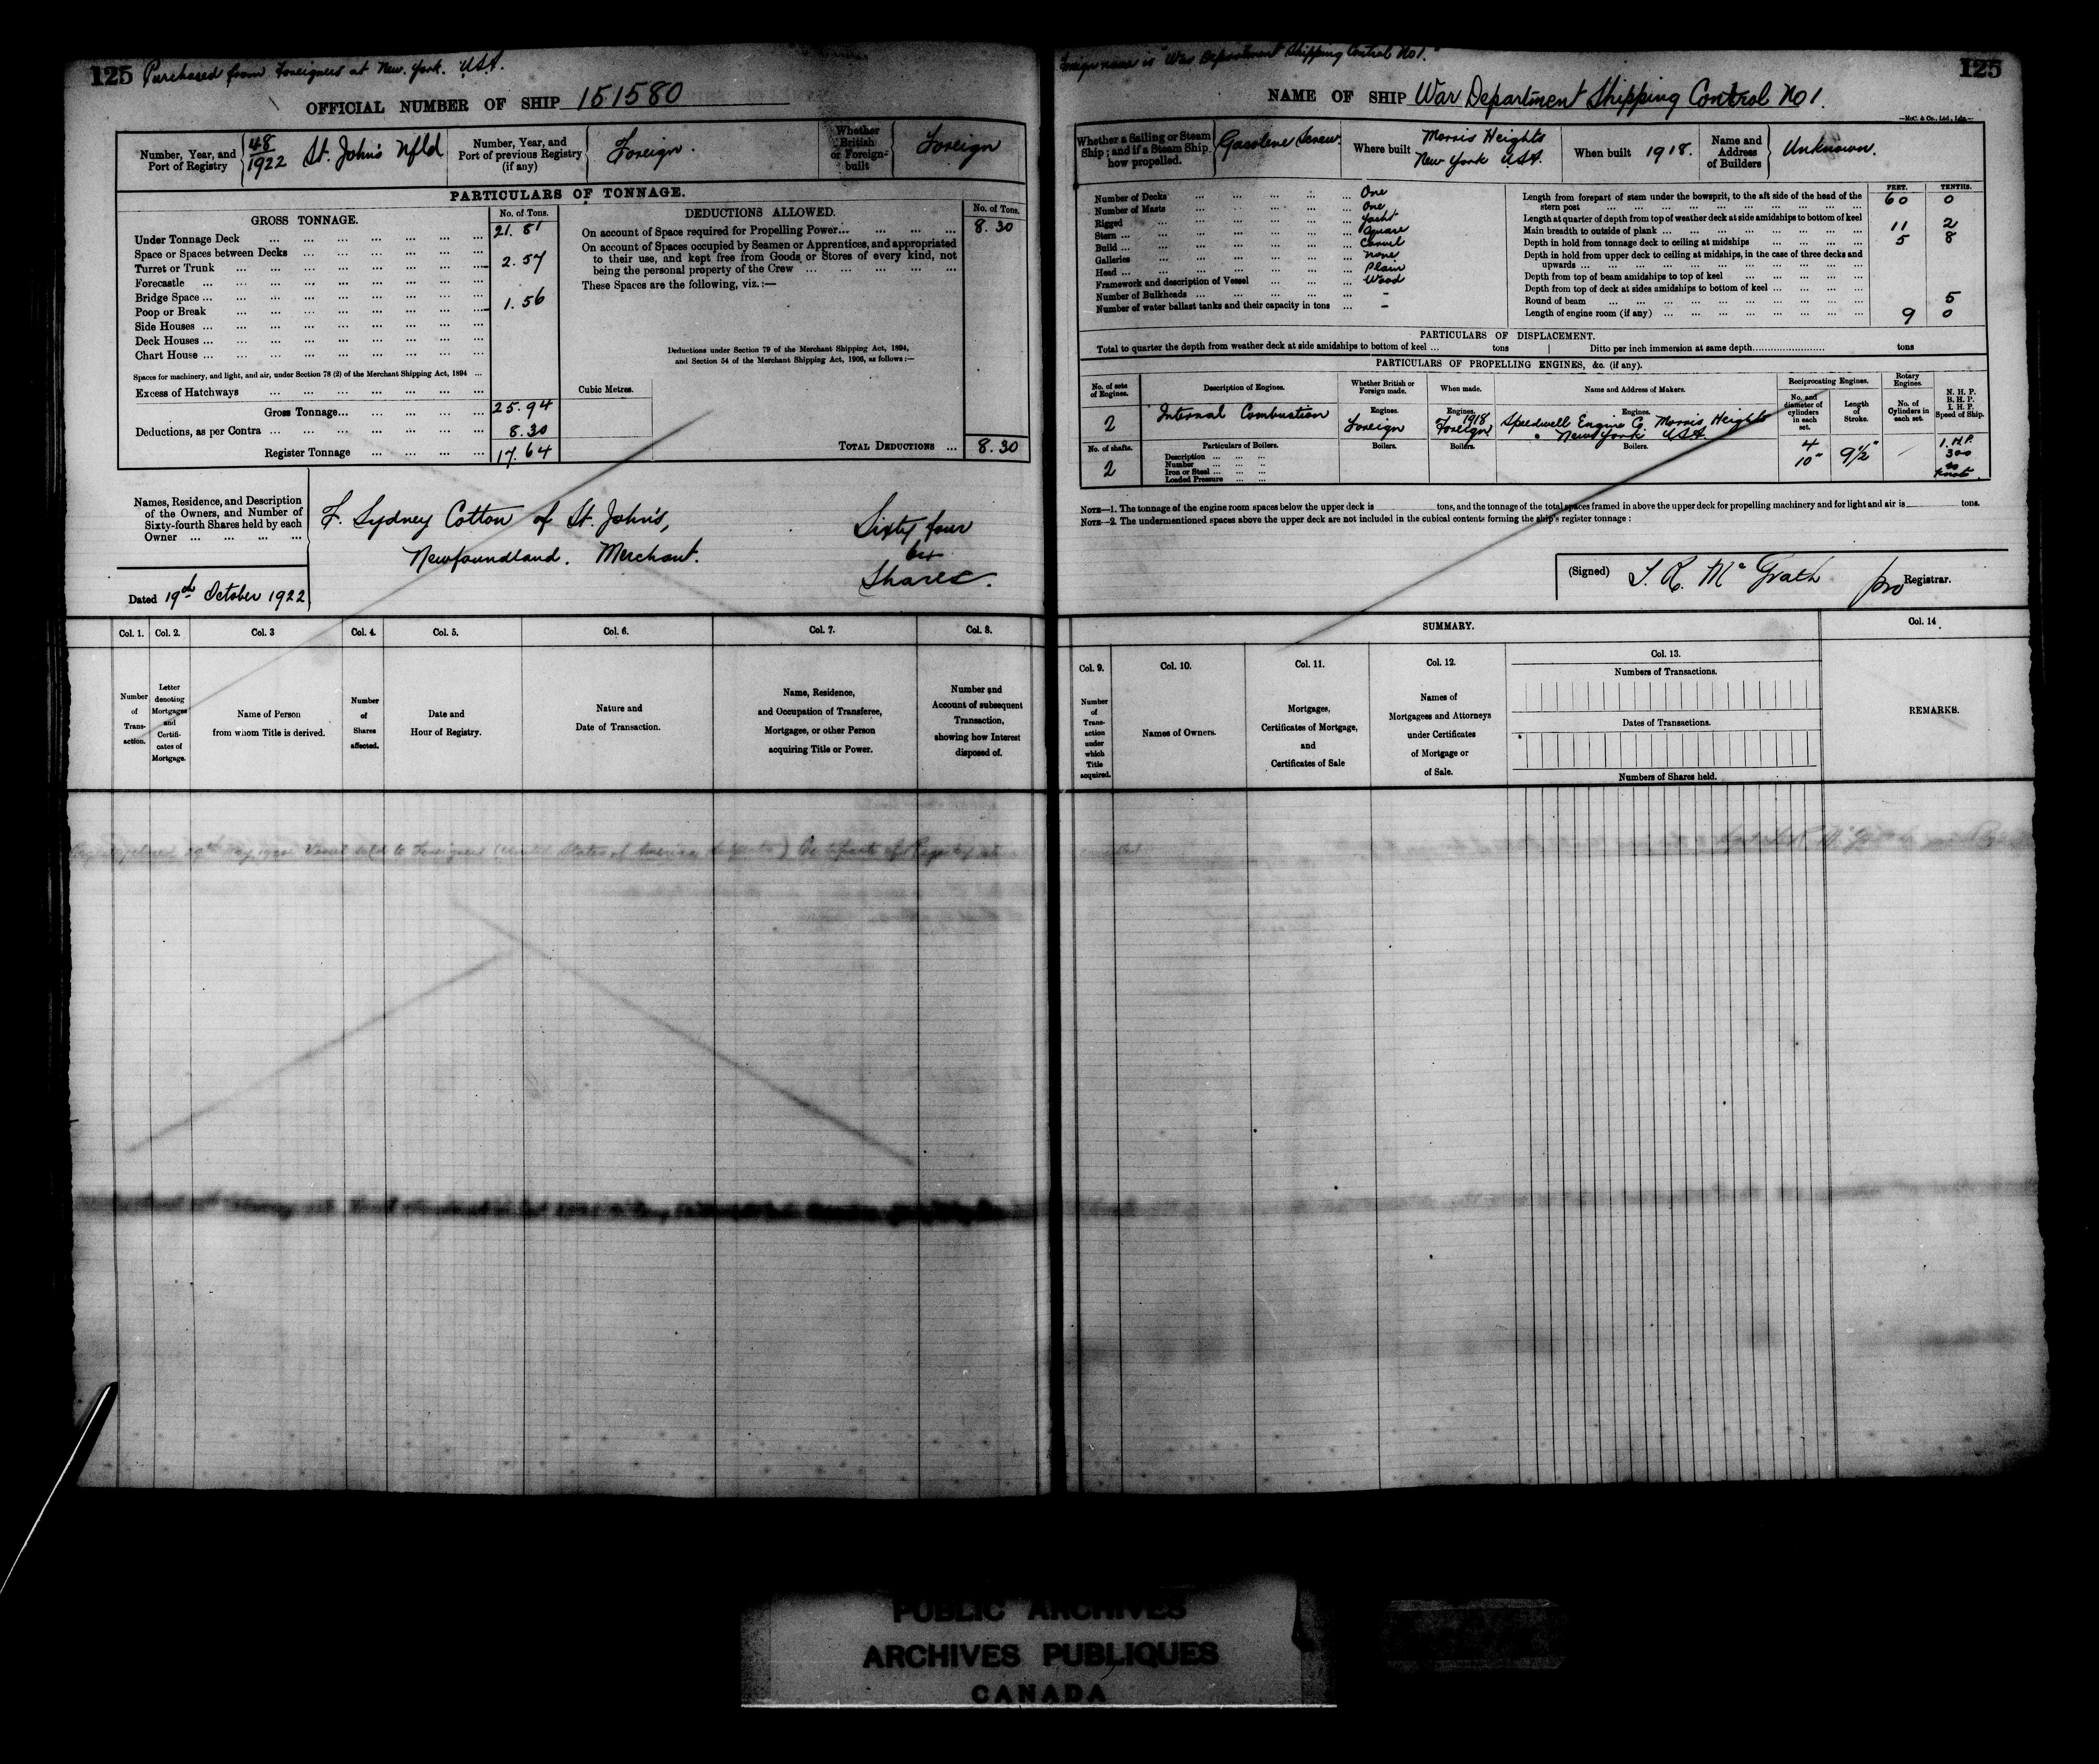 125 Purchased from Foreigners at New York. USA.
OFFICIAL NUMBER OF SHIP 151580
Number, Year, and Port of Registry 48/1922 St. John's Nfld
Number, Year, and Port of previous Registry (if any) Foreign.
Whether British or Foreign-built Foreign
PARTICULARS OF TONNAGE.
GROSS TONNAGE. No. of Tons.
Under Tonnage Deck 21.81
Space or Spaces between Decks
Turret or Trunk 2.57
Forecastle
Bridge Space
Poop or Break 1.56
Side Houses
Deck Houses
Chart House
Spaces for machinery, and light, and air, under Section 78 (2) of the Merchant Shipping Act, 1894
Excess of Hatchways
Gross Tonnage 25.94
Deductions, as per Contra 8.30
Register Tonnage 17.64
DEDUCTIONS ALLOWED. No. of Tons.
On account of Space required for Propelling Power 8.30
On account of Spaces occupied by Seamen or Apprentices, and appropriated
to their use, and kept free from Goods or Stores of every kind, not
being the personal property of the Crew
These Spaces are the following, viz.:—
Deductions under Section 79 of the Merchant Shipping Act, 1894,
and Section 54 of the Merchant Shipping Act, 1906, as follows:—
Cubic Metres.
TOTAL DEDUCTIONS 8.30
Names, Residence, and Description
of the Owners, and Number of
Sixty-fourth Shares held by each
Owner
F. Sydney Cotton of St. John's,
Newfoundland. Merchant.
Sixty four
64
Shares.
Dated 19th October 1922
Col. 1. Number of Transaction.
Col. 2. Letter denoting Mortgages and Certificates of Mortgage.
Col. 3 Name of Person from whom Title is derived.
Col. 4. Number of Shares affected.
Col. 5. Date and Hour of Registry.
Col. 6. Nature and Date of Transaction.
Col. 7. Name, Residence, and Occupation of Transferee, Mortgagee, or other Person acquiring Title or Power.
Col. 8. Number and Account of subsequent Transaction, showing how Interest disposed of.
Foreign name is "War Department Shipping Control No 1."
125
NAME OF SHIP War Department Shipping Control No 1.
—McC. & Co., Ltd., Ldn.—
Whether a Sailing or Steam Ship; and if a Steam Ship how propelled. Gasolene Screw.
Where built Morris Heights New York USA.
When built 1918.
Name and Address of Builders Unknown.
Number of Decks One
Number of Masts One
Rigged Yacht
Stern Square
Build Carvel
Galleries None
Head Plain
Framework and description of Vessel Wood
Number of Bulkheads -
Number of water ballast tanks and their capacity in tons -
FEET. TENTHS.
Length from forepart of stem under the bowsprit, to the aft side of the head of the
stern post 60 0
Length at quarter of depth from top of weather deck at side amidships to bottom of keel
Main breadth to outside of plank 11 2
Depth in hold from tonnage deck to ceiling at midships 5 8
Depth in hold from upper deck to ceiling at midships, in the case of three decks and
upwards
Depth from top of beam amidships to top of keel
Depth from top of deck at sides amidships to bottom of keel
Round of beam 5
Length of engine room (if any) 9 0
PARTICULARS OF DISPLACEMENT.
Total to quarter the depth from weather deck at side amidships to bottom of keel ... tons | Ditto per inch immersion at same depth tons
PARTICULARS OF PROPELLING ENGINES, &c. (if any).
No. of sets of Engines. 2
Description of Engines. Internal Combustion
Whether British or Foreign made. Engines. Foreign
When made. Engines. 1918 Foreign
Name and Address of Makers. Engines. Speedwell Engine Co. Morris Heights
New York USA
Reciprocating Engines. No. and diameter of cylinders in each set. 4 10"
Length of Stroke. 9½"
Rotary Engines. No. of Cylinders in each set.
N. H. P. B. H. P. I. H. P. Speed of Ship. I.H.P. 300
10 knots.
No. of shafts. 2
Particulars of Boilers. Boilers. Boilers. Boilers.
Description
Number
Iron or Steel
Loaded Pressure
NOTE—1. The tonnage of the engine room spaces below the upper deck is tons, and the tonnage of the total spaces framed in above the upper deck for propelling machinery and for light and air is tons.
NOTE—2. The undermentioned spaces above the upper deck are not included in the cubical contents forming the ship's register tonnage:
(Signed) T. R. McGrath pro Registrar.
SUMMARY.
Col. 9. Number of Transaction under which Title acquired.
Col. 10. Names of Owners.
Col. 11. Mortgages, Certificates of Mortgage, and Certificates of Sale
Col. 12. Names of Mortgagees and Attorneys under Certificates of Mortgage or of Sale.
Col. 13. Numbers of Transactions.
Dates of Transactions.
Numbers of Shares held.
Col. 14 REMARKS.
Vessel sold to Foreigners (United States of America
PUBLIC ARCHIVES
ARCHIVES PUBLIQUES
CANADA